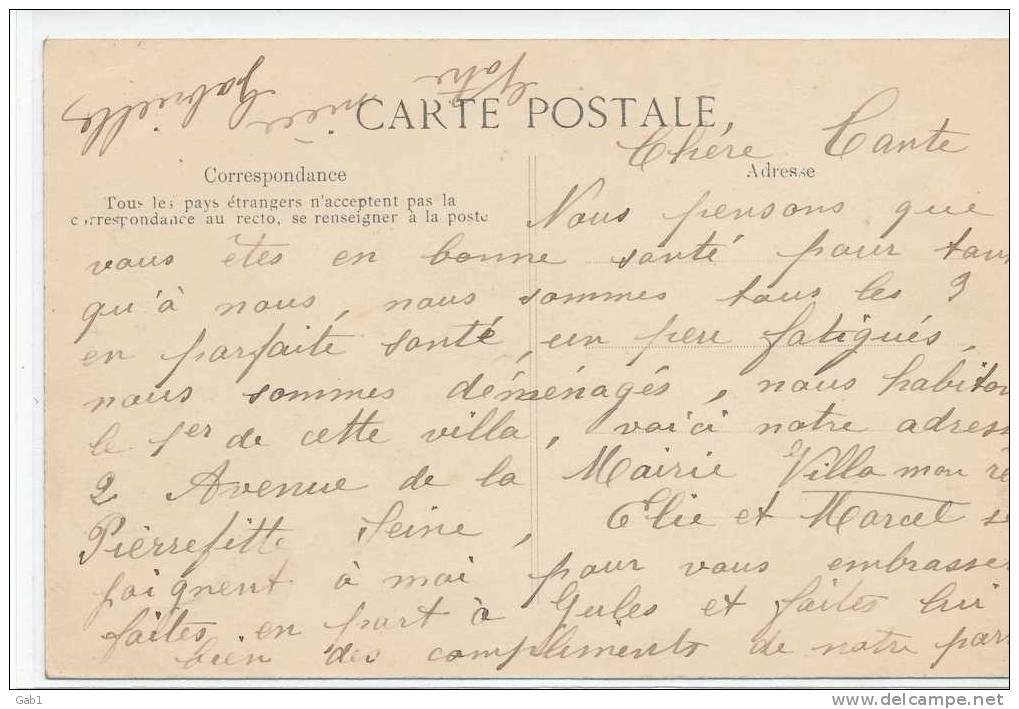 CARTE POSTALE
Correspondance
Adresse
Tous les pays étrangers n'acceptent pas la
correspondance au recto, se renseigner à la poste
Chére Tante
Nous pensons que
vous êtes en bonne santé pour tant
qu'à nous, nous sommes tous les 3
en parfaite santé, un peu fatigués,
nous sommes déménagés, nous habiton
le 1er de cette villa, voici notre adress
2 Avenue de la Mairie Villa mon re
Pierrefitte Seine, Elie et Marcel se
joignent à moi pour vous embrasser
faites en part à Gules et faites lui
bien des compliments de notre part
Votre
nièce Gabrielle
Gab1
www.delcampe.net